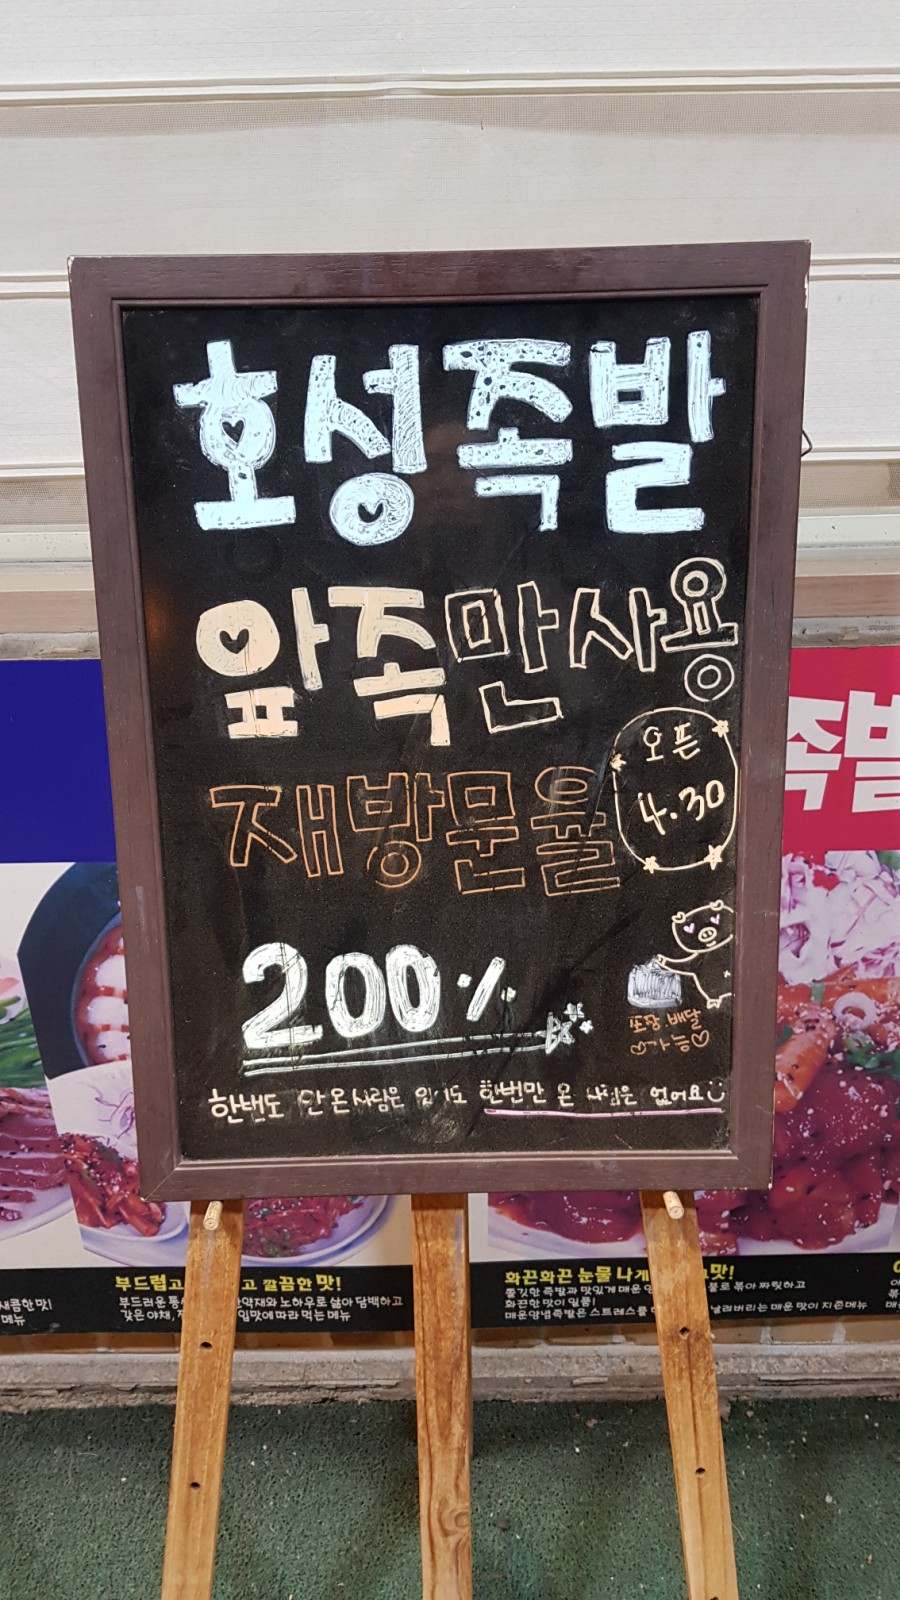 호성족발
앞족만사용
재방문율
오픈
4.30
200%
포장 배달
가능
한번도 안 온 사람은 있어도 한번만 온 사람은 없어요
족발
부드럽고 깔끔한 맛!
노하우로 삶아 담백하고
입맛에 따라 먹는 메뉴
새콤한 맛!
메뉴
화끈화끈 눈물 나게
맛!
쫄깃한 족발과 맛있게 매운
불로 볶아 짜릿하고
화끈한 맛이 일품!
매운양념족발은 스트레스를
날려버리는 매운 맛이 지존메뉴